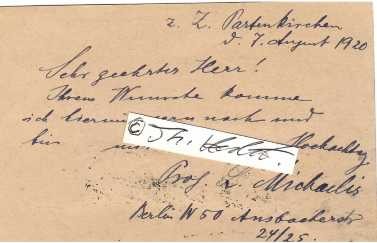 z. Z. Partenkirchen
d. 7. August 1920
Sehr geehrter Herr!
Ihrem Wunsche komme
ich hiermit gern nach und
bin mit Hochachtung
© Th. Vedder
Prof L. Michaelis
Berlin W 50 Ansbacherstr
24/25.